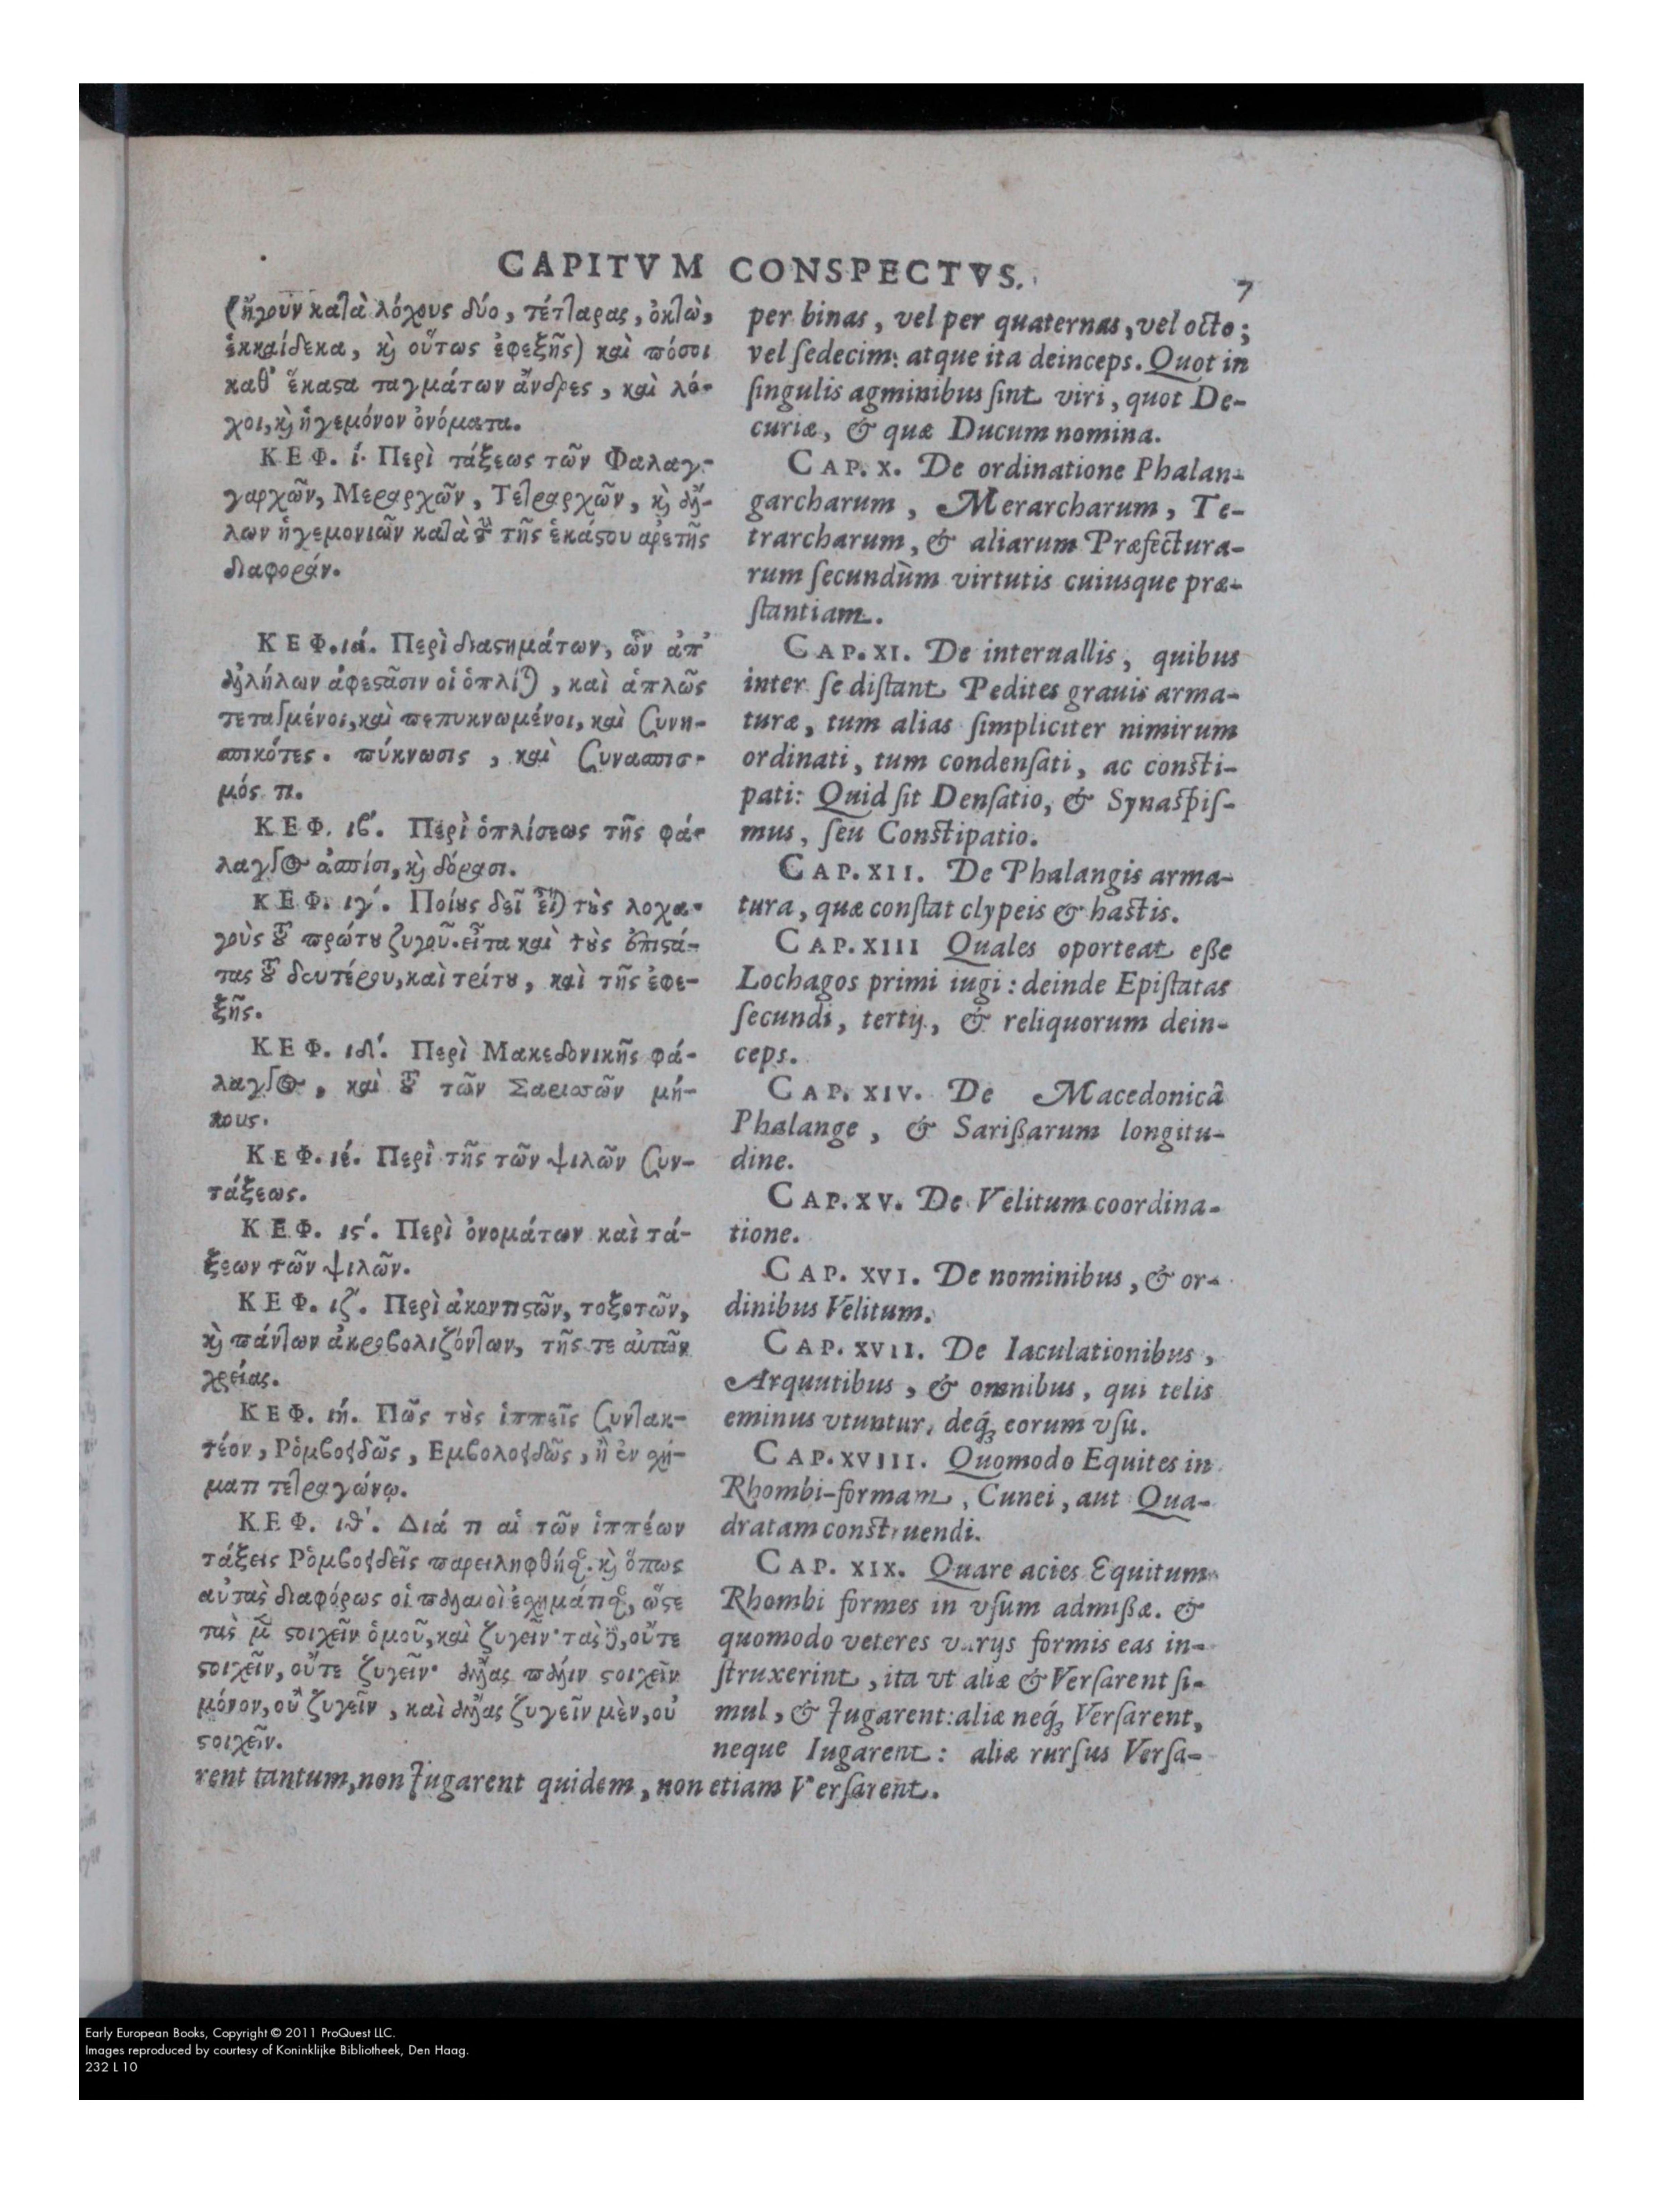 CAPITVM CONSPECTVS.
7
(ἤγουν κατὰ λόχους δύο, τέτταρας, ὀκτὼ,
ἑκκαίδεκα, κ̀ οὕτως ἐφεξῆς) καὶ πόσοι
καθ' ἕκαϛα ταγμάτων ἄνδρες, καὶ λό-
χοι, κ̀ ἡγεμόνον ὀνόματα.
ΚΕΦ. ί. Περὶ τάξεως τῶν Φαλαγ-
γαρχῶν, Μεραρχῶν, Τετραρχῶν, κ̀ ἄλ-
λων ἡγεμονιῶν κατὰ τ̀ τῆς ἑκάϛου ἀρετῆς
διαφοράν.
ΚΕΦ. ιά. Περὶ διαϛημάτων, ὧν ἀπ'
ἀλλήλων ἀφεϛᾶσιν οἱ ὁπλίται, καὶ ἁπλῶς
τεταγμένοι, καὶ πεπυκνωμένοι, καὶ συνη-
σπικότες. πύκνωσις, καὶ συνασπισ-
μός τι.
ΚΕΦ. ιβ'. Περὶ ὁπλίσεως τῆς φά-
λαγγος ἀσπίσι, κ̀ δόρασι.
ΚΕΦ. ιγ'. Ποίȣς δεῖ εἶναι τȣ̀ς λοχα-
γοὺς τȣ͂ πρώτȣ ζυγοῦ. εἶτα καὶ τȣ̀ς ἐπιϛά-
τας τȣ͂ δευτέρου, καὶ τρίτȣ, καὶ τῆς ἐφε-
ξῆς.
ΚΕΦ. ιδ'. Περὶ Μακεδονικῆς φά-
λαγγος, καὶ τȣ͂ τῶν Σαρισσῶν μή-
κους.
ΚΕΦ. ιέ. Περὶ τῆς τῶν ψιλῶν συν-
τάξεως.
ΚΕΦ. ιϛ'. Περὶ ὀνομάτων καὶ τά-
ξεων τῶν ψιλῶν.
ΚΕΦ. ιζ'. Περὶ ἀκοντιϛῶν, τοξοτῶν,
κ̀ πάντων ἀκροβολιζόντων, τῆς τε αὐτῶν
χρείας.
ΚΕΦ. ιή. Πῶς τȣ̀ς ἱππεῖς συντακ-
τέον, Ρὁμβοειδῶς, Εμβολοειδῶς, ἢ ἐν σχή-
ματι τετραγώνῳ.
ΚΕΦ. ιθ'. Διά τι αἱ τῶν ἱππέων
τάξεις Ρὁμβοειδεῖς παρειλήφθησαν. κ̀ ὅπως
αὐτὰς διαφόρως οἱ παλαιοὶ ἐσχημάτισαν, ὥϛε
τὰς μ̀ ϛοιχεῖν ὁμοῦ, καὶ ζυγεῖν· τὰς δὲ, οὔτε
ϛοιχεῖν, οὔτε ζυγεῖν· ἄλλας πάλιν ϛοιχεῖν
μόνον, οὐ ζυγεῖν, καὶ ἄλλας ζυγεῖν μὲν, οὐ
ϛοιχεῖν.
per binas, vel per quaternas, vel octo;
vel ſedecim: atque ita deinceps. Quot in
ſingulis agminibus ſint viri, quot De-
curiæ, & quæ Ducum nomina.
CAP. X. De ordinatione Phalan-
garcharum, Merarcharum, Te-
trarcharum, & aliarum Præfectura-
rum ſecundùm virtutis cuiusque præ-
ſtantiam.
CAP. XI. De interuallis, quibus
inter ſe diſtant Pedites grauis arma-
turæ, tum alias ſimpliciter nimirum
ordinati, tum condenſati, ac conſti-
pati: Quid ſit Denſatio, & Synaſpiſ-
mus, ſeu Conſtipatio.
CAP. XII. De Phalangis arma-
tura, quæ conſtat clypeis & haſtis.
CAP. XIII Quales oporteat eſſe
Lochagos primi iugi: deinde Epiſtatas
ſecundi, tertij, & reliquorum dein-
ceps.
CAP. XIV. De Macedonicâ
Phalange, & Sariſſarum longitu-
dine.
CAP. XV. De Velitum coordina-
tione.
CAP. XVI. De nominibus, & or-
dinibus Velitum.
CAP. XVII. De Iaculationibus,
Arquutibus, & omnibus, qui telis
eminus vtuntur, deq́; eorum vſu.
CAP. XVIII. Quomodo Equites in
Rhombi-formam, Cunei, aut Qua-
dratam conſtruendi.
CAP. XIX. Quare acies Equitum
Rhombi formes in vſum admiſſæ. &
quomodo veteres varijs formis eas in-
ſtruxerint, ita vt aliæ & Verſarent ſi-
mul, & Jugarent: aliæ neq́; Verſarent,
neque Iugarent: aliæ rurſus Verſa-
rent tantum, non Jugarent quidem, non etiam Verſarent.
Early European Books, Copyright © 2011 ProQuest LLC.
Images reproduced by courtesy of Koninklijke Bibliotheek, Den Haag.
232 L 10